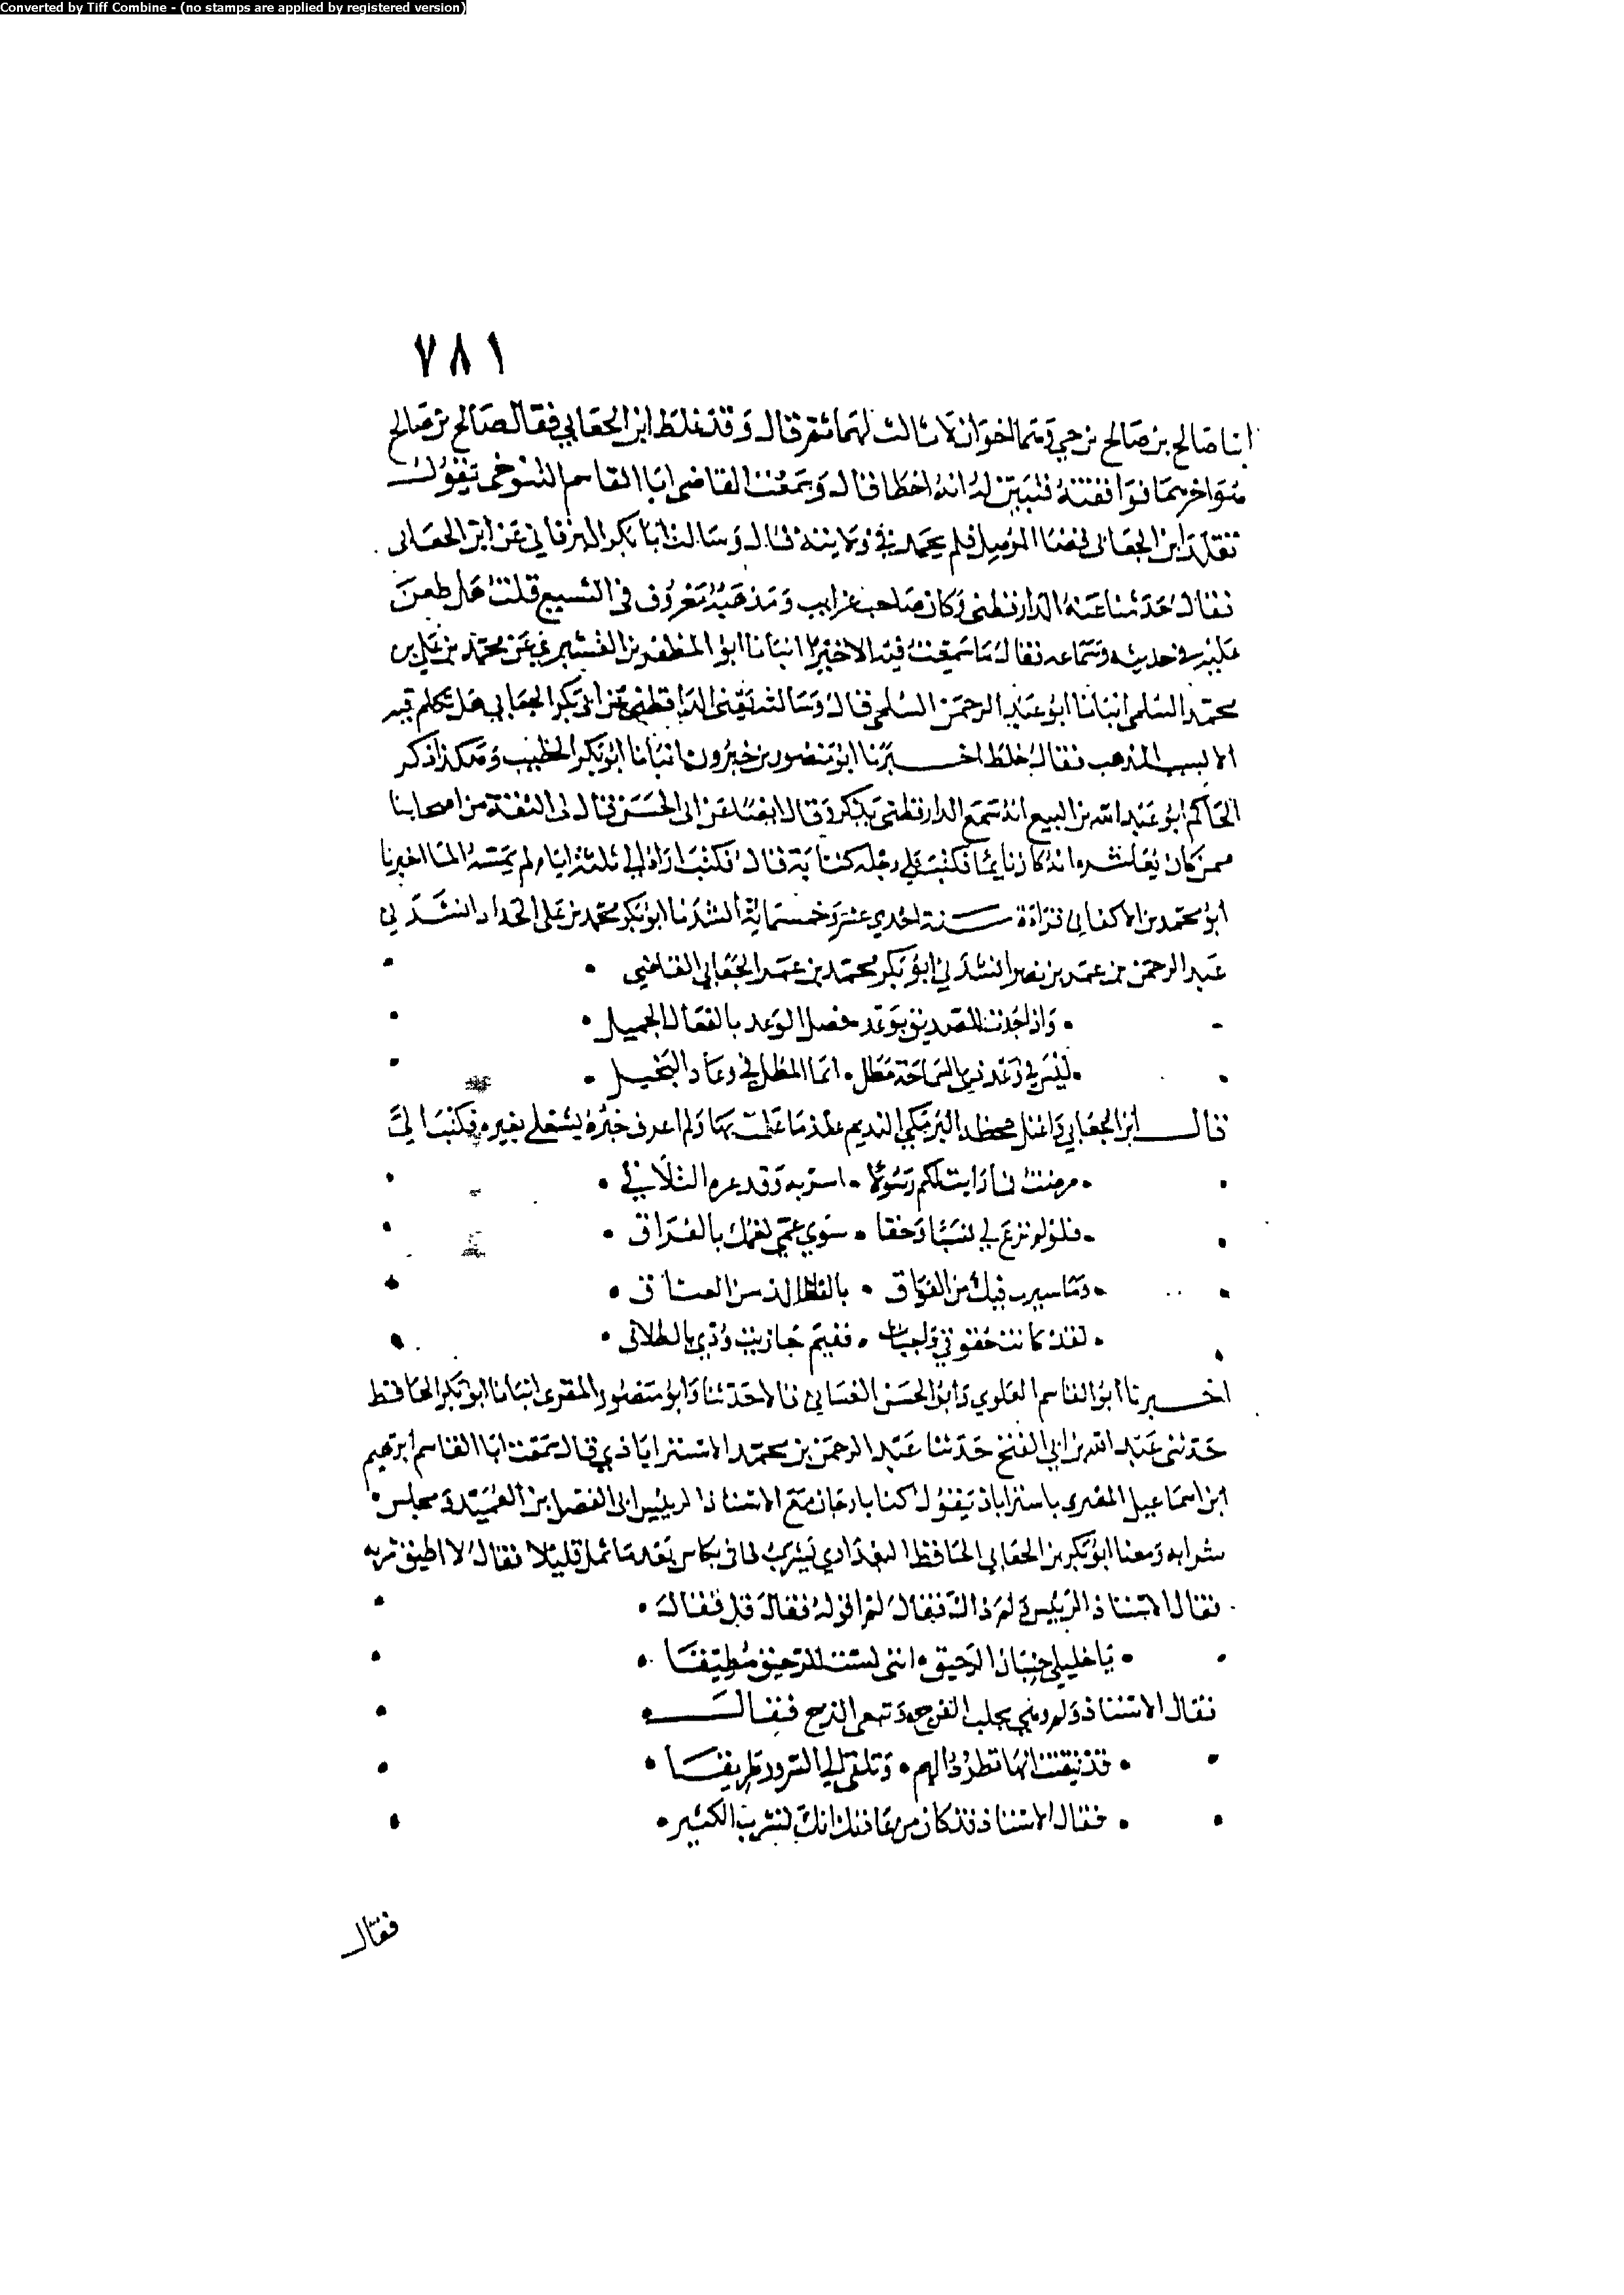 Converted by Tiff Combine - (no stamps are applied by registered version)
٧٨١
ابنا صالح بن صالح بن حي وهما اخوان لا ثالث لهما ثم قال وقد غلط ابن الجعابي فقال صالح بن صالح
قال وسمعت القاضي ابا القاسم التنوخي يقول
تقلد ابن الجعابي قضا الموصل فلم يحمد في ولايته قال وسالت ابا بكر البرقاني عن ابن الجعابي
فقال حدثنا عنه الدارقطني وكان صاحب غرايب ومذهبه معروف في التشيع قلت هل طعن
عليه في حديثه وسماعه فقال ما سمعت فيه الا خيرا انبانا ابو المظفر بن القشيري عن محمد بن علي بن
محمد السلمي انبانا ابو عبد الرحمن السلمي قال وسالته يعني الدارقطني عن ابي بكر الجعابي هل تكلم فيه
الا لسبب المذهب فقال خلط اخبرنا ابو منصور بن خيرون انبانا ابو بكر الخطيب وهكذا ذكر
الحاكم ابو عبد الله بن البيع انه سمع الدارقطني يذكر وقال ايضا عن ابي الحسن قال لي الثقة من اصحابنا
ممن كان يعاشره انه كان نايما فكتبت على رجله كتابة قال فكنت اراه الى ثلثة ايام لم يمسه الما اخبرنا
ابو محمد بن الاكفاني قراءة سنة احدي عشر وخمسماية انشدنا ابو بكر محمد بن علي الحداد انشدني
عبد الرحمن بن عمر بن نصر انشدني ابو بكر محمد بن عمر الجعابي القاضي
واذا جدت للصديق بوعد فصل الوعد بالفعال الجميل
ليس في وعد ذي السماحة مطل انما المطل في وعاد البخيل
قال ابن الجعابي جحظه البرمكي النديم ولم اعرف خبره بغيره فكتب الي
مرضت فما رايت لكم رسولا
سوي غمي لغمك بالفراق
وما سيرت فيك من القواق
لقد كانت حقوقي واجبات ففيم جازيت ودي بالطلاق
اخبرنا ابو القاسم العلوي وابو الحسن الغساني قالا حدثنا وابو منصور المقري انبانا ابو بكر الحافظ
حدثني عبد الله بن ابي الفتح حدثنا عبد الرحمن بن محمد الاستراباذي قال سمعت ابا القاسم ابرهيم
ابن اسماعيل المقري باستراباذ يقول كنا بارجان مع الاستاذ الرييس ابي الفضل بن العميد في مجلس
شرابه ومعنا ابو بكر بن الجعابي الحافظ البغدادي يشرب فاتي بكاس بعد ما ثمل قليلا فقال لا اطيق شربه
فقال الاستاذ الرييس ولم ذاك فقال لما اقوله فقال قل فقال
يا خليلي جنباني الرحيق انني لست للرحيق مطيقا
فقال الاستاذ ولم وهي تجلب الفرح وتنفي الترح فقال
قد تيقنت انها تطرد الهم وتلقي الي السرور طريقا
فقال الاستاذ قد كان من عادتك انك لتشرب الكثير
فقال